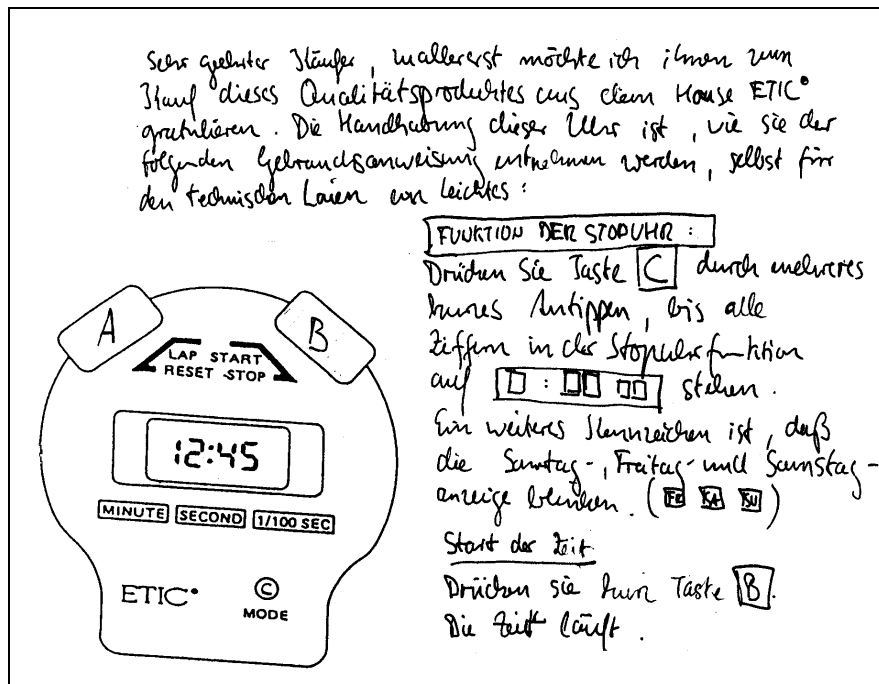 Sehr geehrter Käufer, zuallererst möchte ich ihnen zum
Kauf dieses Qualitätsproduktes aus dem Hause ETIC
gratulieren. Die Handhabung dieser Uhr ist, wie sie der
folgenden Gebrauchsanweisung entnehmen werden, selbst für
den technischen Laien ein leichtes:
FUNKTION DER STOPUHR :
Drücken Sie Taste C durch mehreres
kurzes Antippen, bis alle
Ziffern in der Stopuhrfunktion
auf 0 : 00 00 stehen.
Ein weiteres Kennzeichen ist, daß
die Sonntag-, Freitag- und Samstag-
anzeige blinken. (FR SA SU)
Start der Zeit
Drücken sie kurz Taste B.
Die Zeit läuft.
A
B
LAP START
RESET -STOP
12:45
MINUTE SECOND 1/100 SEC
ETIC
C
MODE